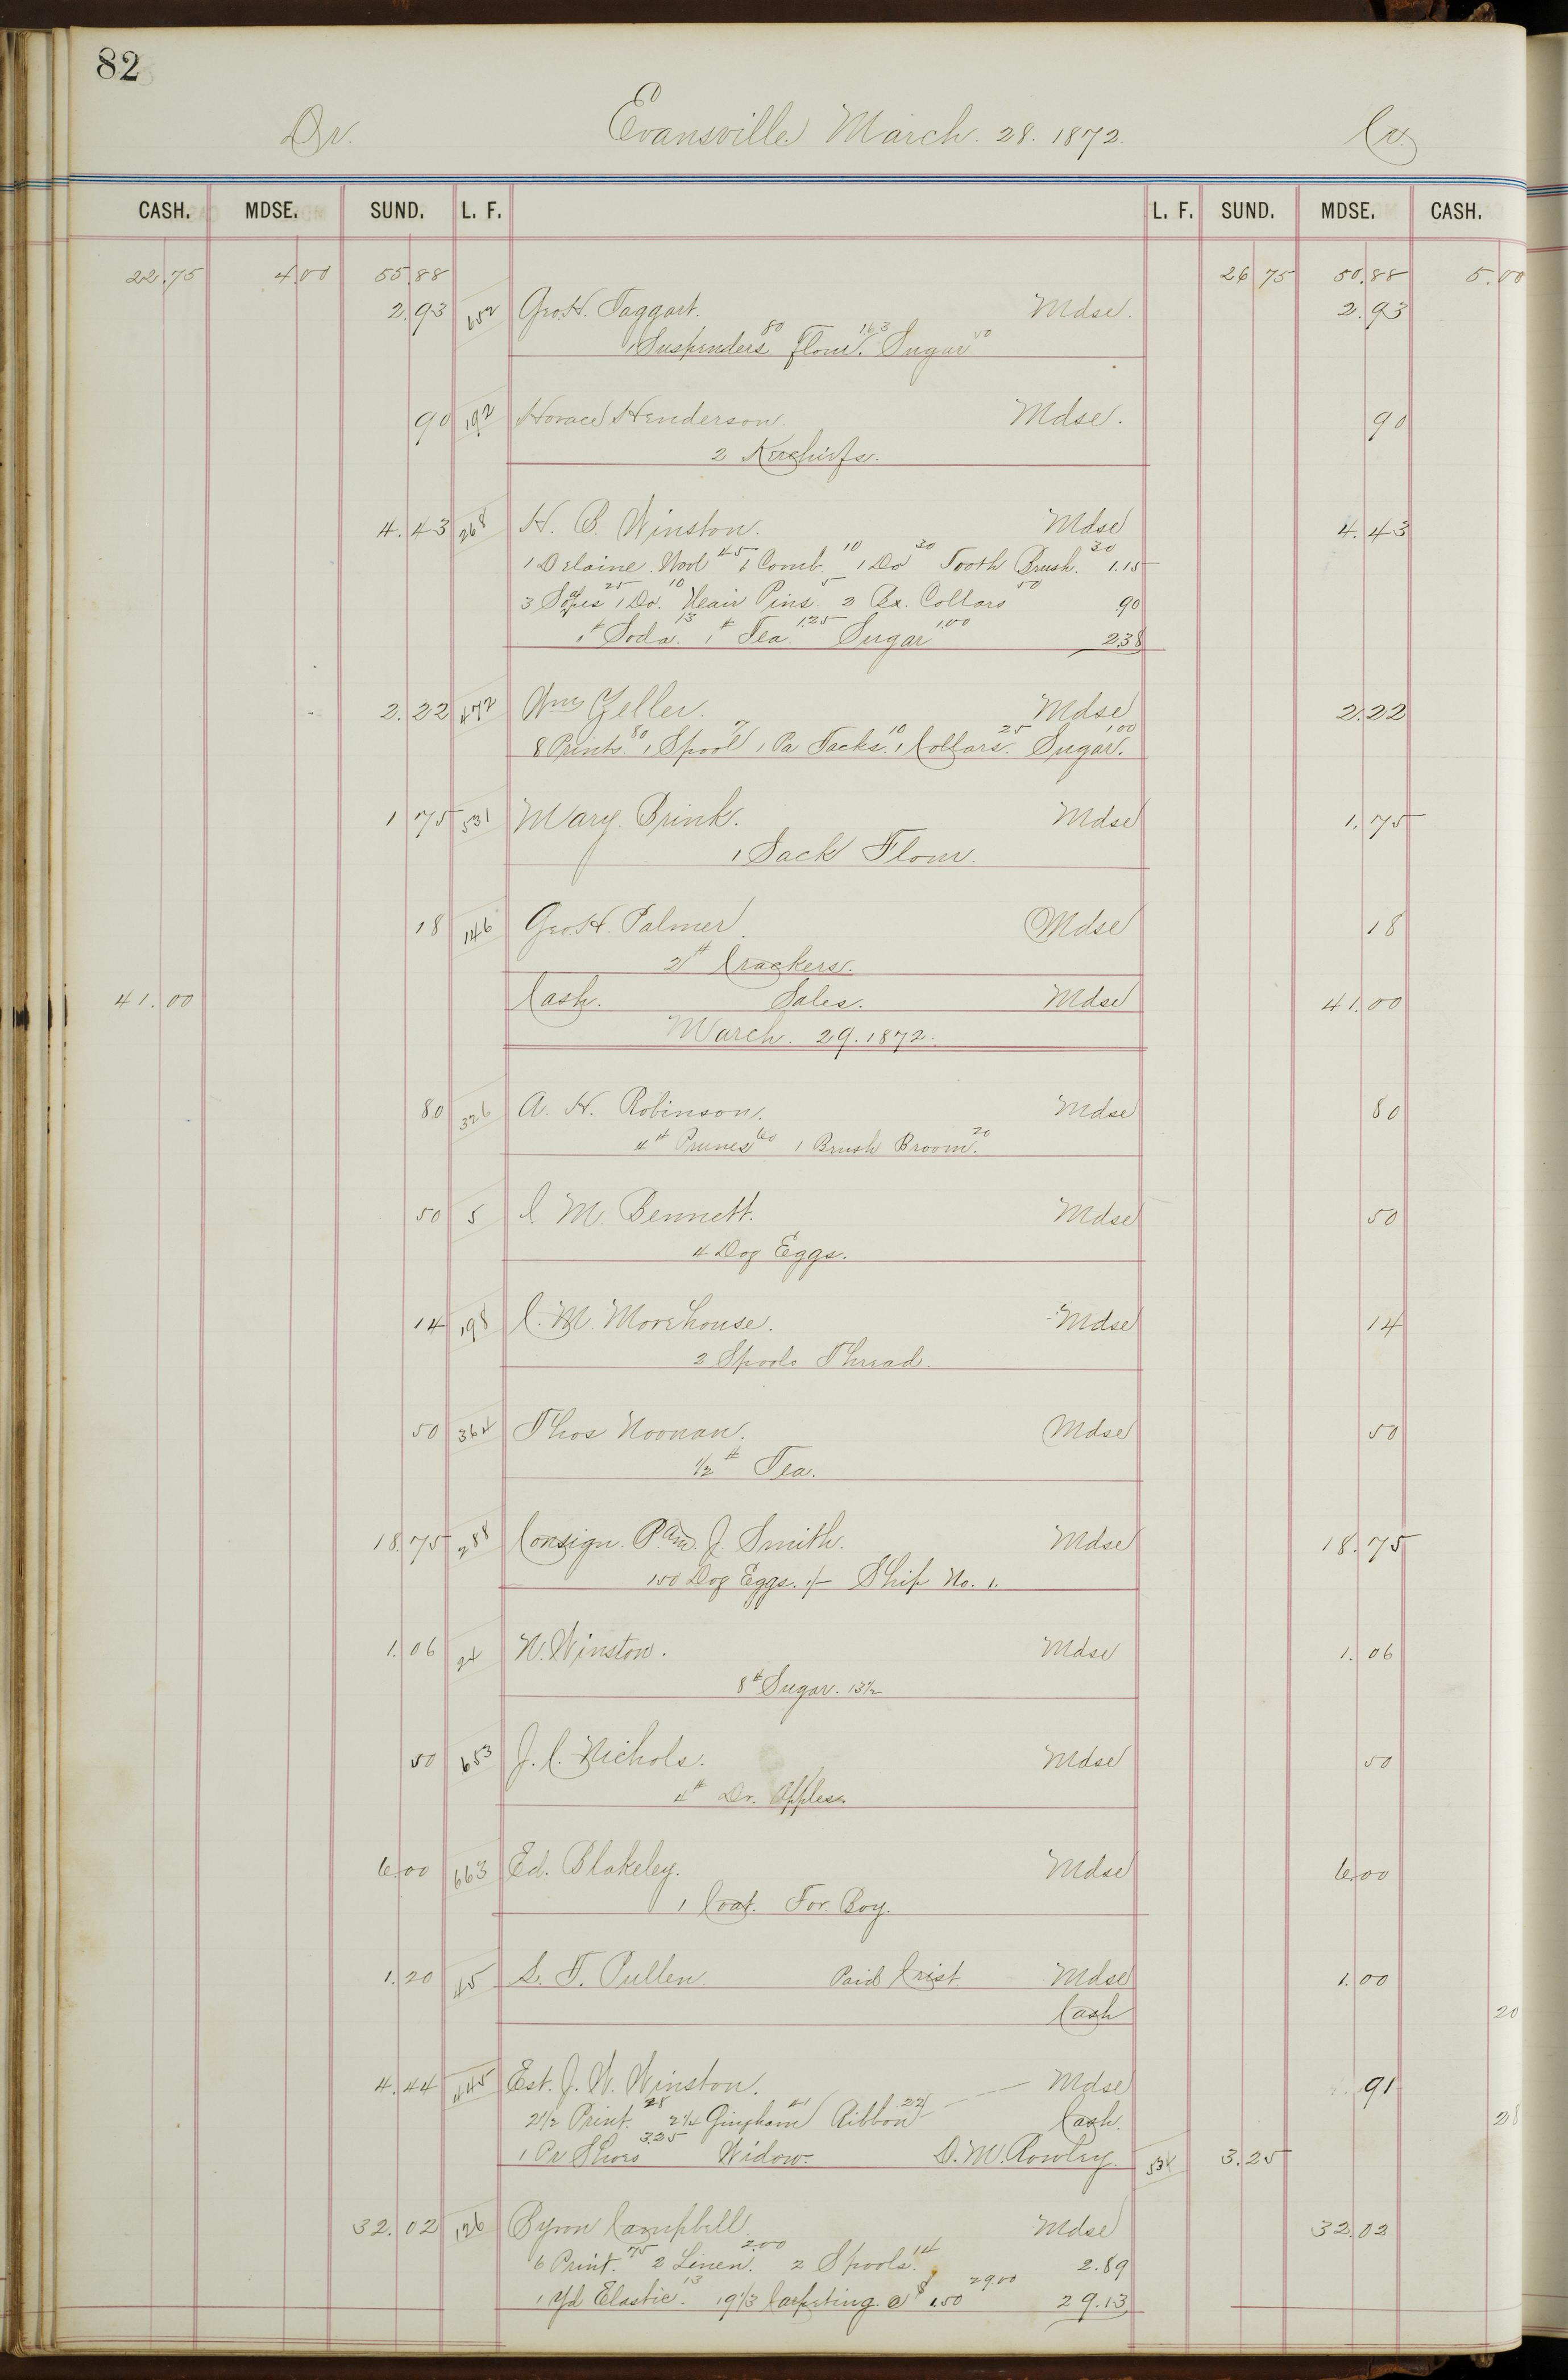 82
Dr. Evansville March. 28. 1872. Cr
CASH. MDSE. SUND. L. F. L. F. SUND. MDSE. CASH.
22.75 4.00 55.88 26 75 50.88 5.00
2.93 652 Geo H. Taggart. Mdse. 2.93
1 Suspenders 80 Flour. 163 Sugar 50
90 192 Horace Henderson. Mdse. 90
2 Kerchiefs.
4.43 268 H. B. Winston. Mdse 4.43
1 Delaine Wool 45 1 Comb. 10 1 Do 30 Tooth Brush. 30 1.15
3 25 1 Do. 10 Hair Pins 5 2 Bx. Collars 50 90
1# Soda. 13 1# Tea. 1.25 Sugar 1.00 2.38
2.22 472 Wm Zeller. Mdse 2.22
8 Prints 80 1 Spool 7 1 Pa Tacks. 10 1 Collars. 25 Sugar. 1.00
1 75 531 Mary Brink. Mdse 1.75
1 Sack Flour.
18 146 Geo. H. Palmer. Mdse 18
2# Crackers.
41.00 Cash. Sales. Mdse 41.00
March. 29. 1872.
80 326 A. H. Robinson. Mdse 80
4# Prunes 60 1 Brush Broom. 20
50 5 C M. Bennett. Mdse 50
4 Doz Eggs.
14 198 C. M. Morehouse. Mdse 14
2 Spools Thread.
50 364 Thos Noonan. Mdse 50
1/2# Tea.
18.75 288 Consign. J. Smith. Mdse 18.75
150 Doz Eggs. Ship No. 1.
1.06 24 N. Winston. Mdse 1.06
8# Sugar. 13 1/2
50 653 J. C. Nichols. Mdse 50
4# Dr. Apples.
6.00 663 Ed. Blakeley. Mdse 6.00
1 Coat. For. Boy.
1.20 45 L. T. Pullen. Paid Crist. Mdse 1.00
Cash 20
4.44 445 Est. J. W. Winston. Mdse 91
2 1/2 Print. 28 2 1/4 Gingham 41 Ribbon 22 Cash. 28
1 Pr Shoes 3.25 Widow. D. M. Rowley. 534 3.25
32.02 126 Byron Campbell. Mdse 32.02
6 Print. 75 2 Linen. 2.00 2 Spools. 14 2.89
1 Yd Elastic. 13 19 1/3 Carpeting. @ $1.50 29.00 29.13